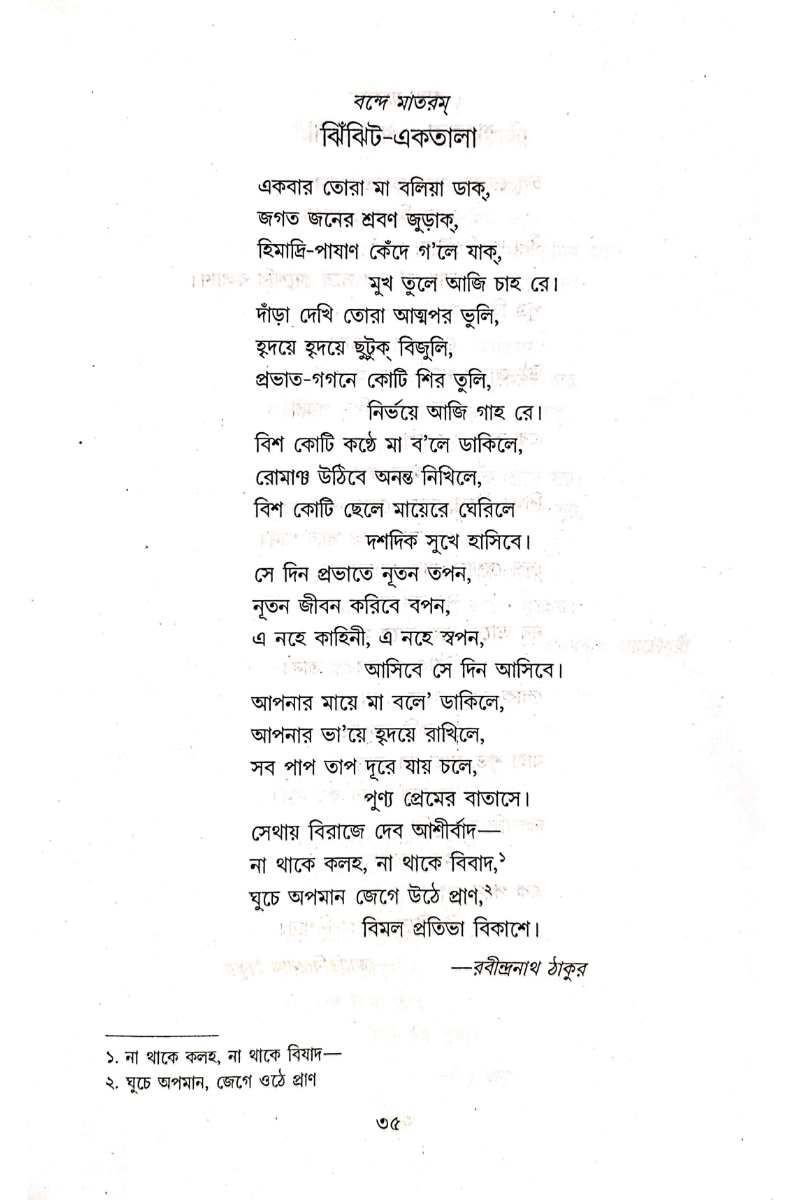 বন্দে মাতরম্
ঝিঁঝিট-একতালা
একবার তোরা মা বলিয়া ডাক্,
জগত জনের শ্রবণ জুড়াক্,
হিমাদ্রি-পাষাণ কেঁদে গ'লে যাক্,
মুখ তুলে আজি চাহ রে।
দাঁড়া দেখি তোরা আত্মপর ভুলি,
হৃদয়ে হৃদয়ে ছুটুক্ বিজুলি,
প্রভাত-গগনে কোটি শির তুলি,
নির্ভয়ে আজি গাহ রে।
বিশ কোটি কণ্ঠে মা ব'লে ডাকিলে,
রোমাঞ্চ উঠিবে অনন্ত নিখিলে,
বিশ কোটি ছেলে মায়েরে ঘেরিলে
দশদিক সুখে হাসিবে।
সে দিন প্রভাতে নূতন তপন,
নূতন জীবন করিবে বপন,
এ নহে কাহিনী, এ নহে স্বপন,
আসিবে সে দিন আসিবে।
আপনার মায়ে মা বলে' ডাকিলে,
আপনার ভা'য়ে হৃদয়ে রাখিলে,
সব পাপ তাপ দূরে যায় চলে,
পুণ্য প্রেমের বাতাসে।
সেথায় বিরাজে দেব আশীর্বাদ—
না থাকে কলহ, না থাকে বিবাদ,১
ঘুচে অপমান জেগে উঠে প্রাণ,২
বিমল প্রতিভা বিকাশে।
—রবীন্দ্রনাথ ঠাকুর
১. না থাকে কলহ, না থাকে বিষাদ—
২. ঘুচে অপমান, জেগে ওঠে প্রাণ
৩৫